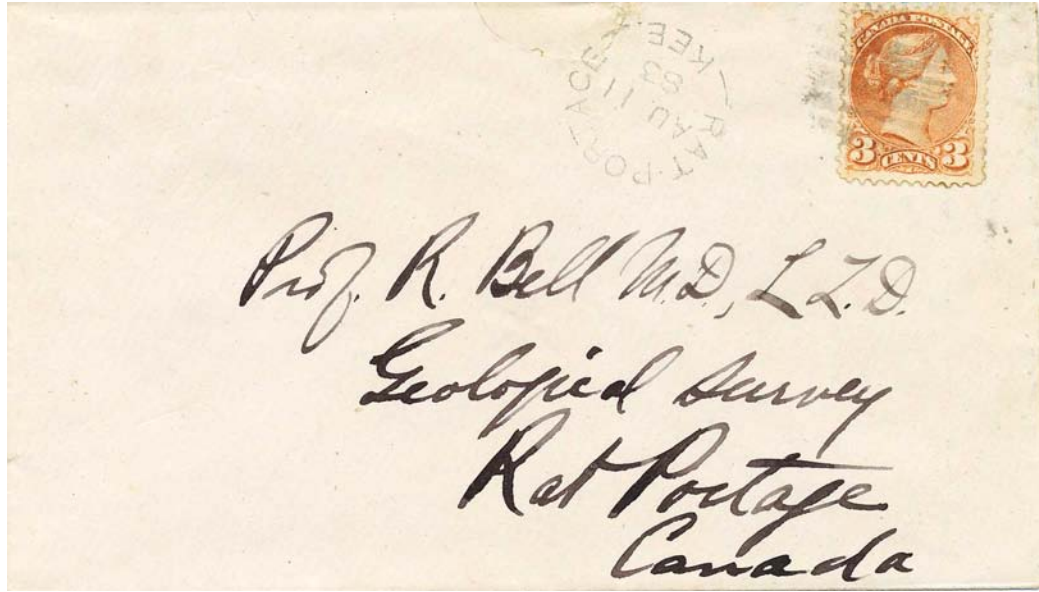 RAT-PORTAGE
KEE.
AU 11
83
CANADA POSTAGE
3 CENTS 3
Prof. R. Bell M.D., L L.D.
Geological Survey
Rat Portage
Canada